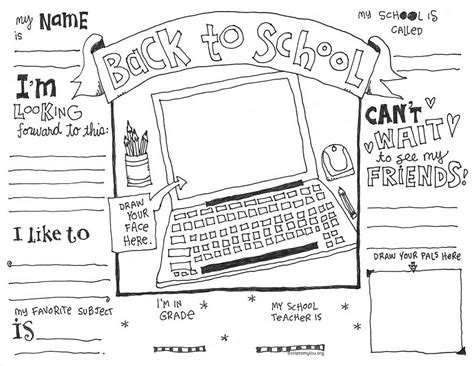 my NAME
is
BACK to SCHOOL
my SCHOOL iS
CALLED
I'm
LOOKING
forward to this:
CAN'T
WAIT
to see my
FRIENDS!
DRAW
YOUR
FACE
HERE.
I like to
DRAW YOUR PALS HERE
my FAVORITE SUBJECT
iS
I'M IN
GRADE
MY SCHOOL
TEACHER IS
©skiptomylou.org